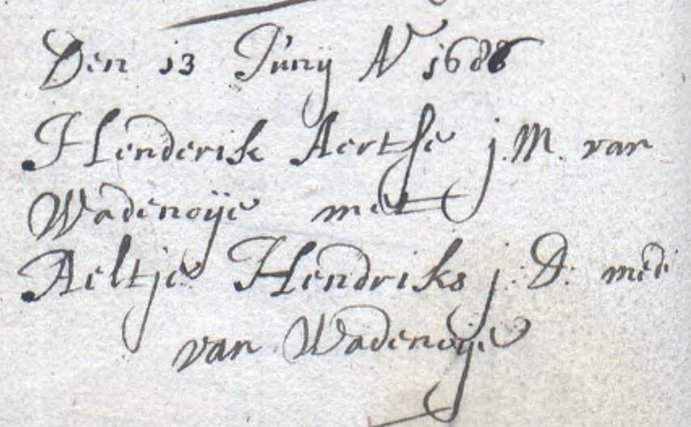 Den 13 Juny Aº 1686
Henderik Aertse j.M. van
Wadenoije met
Aeltje Hendriks j.D. mede
van Wadenoije